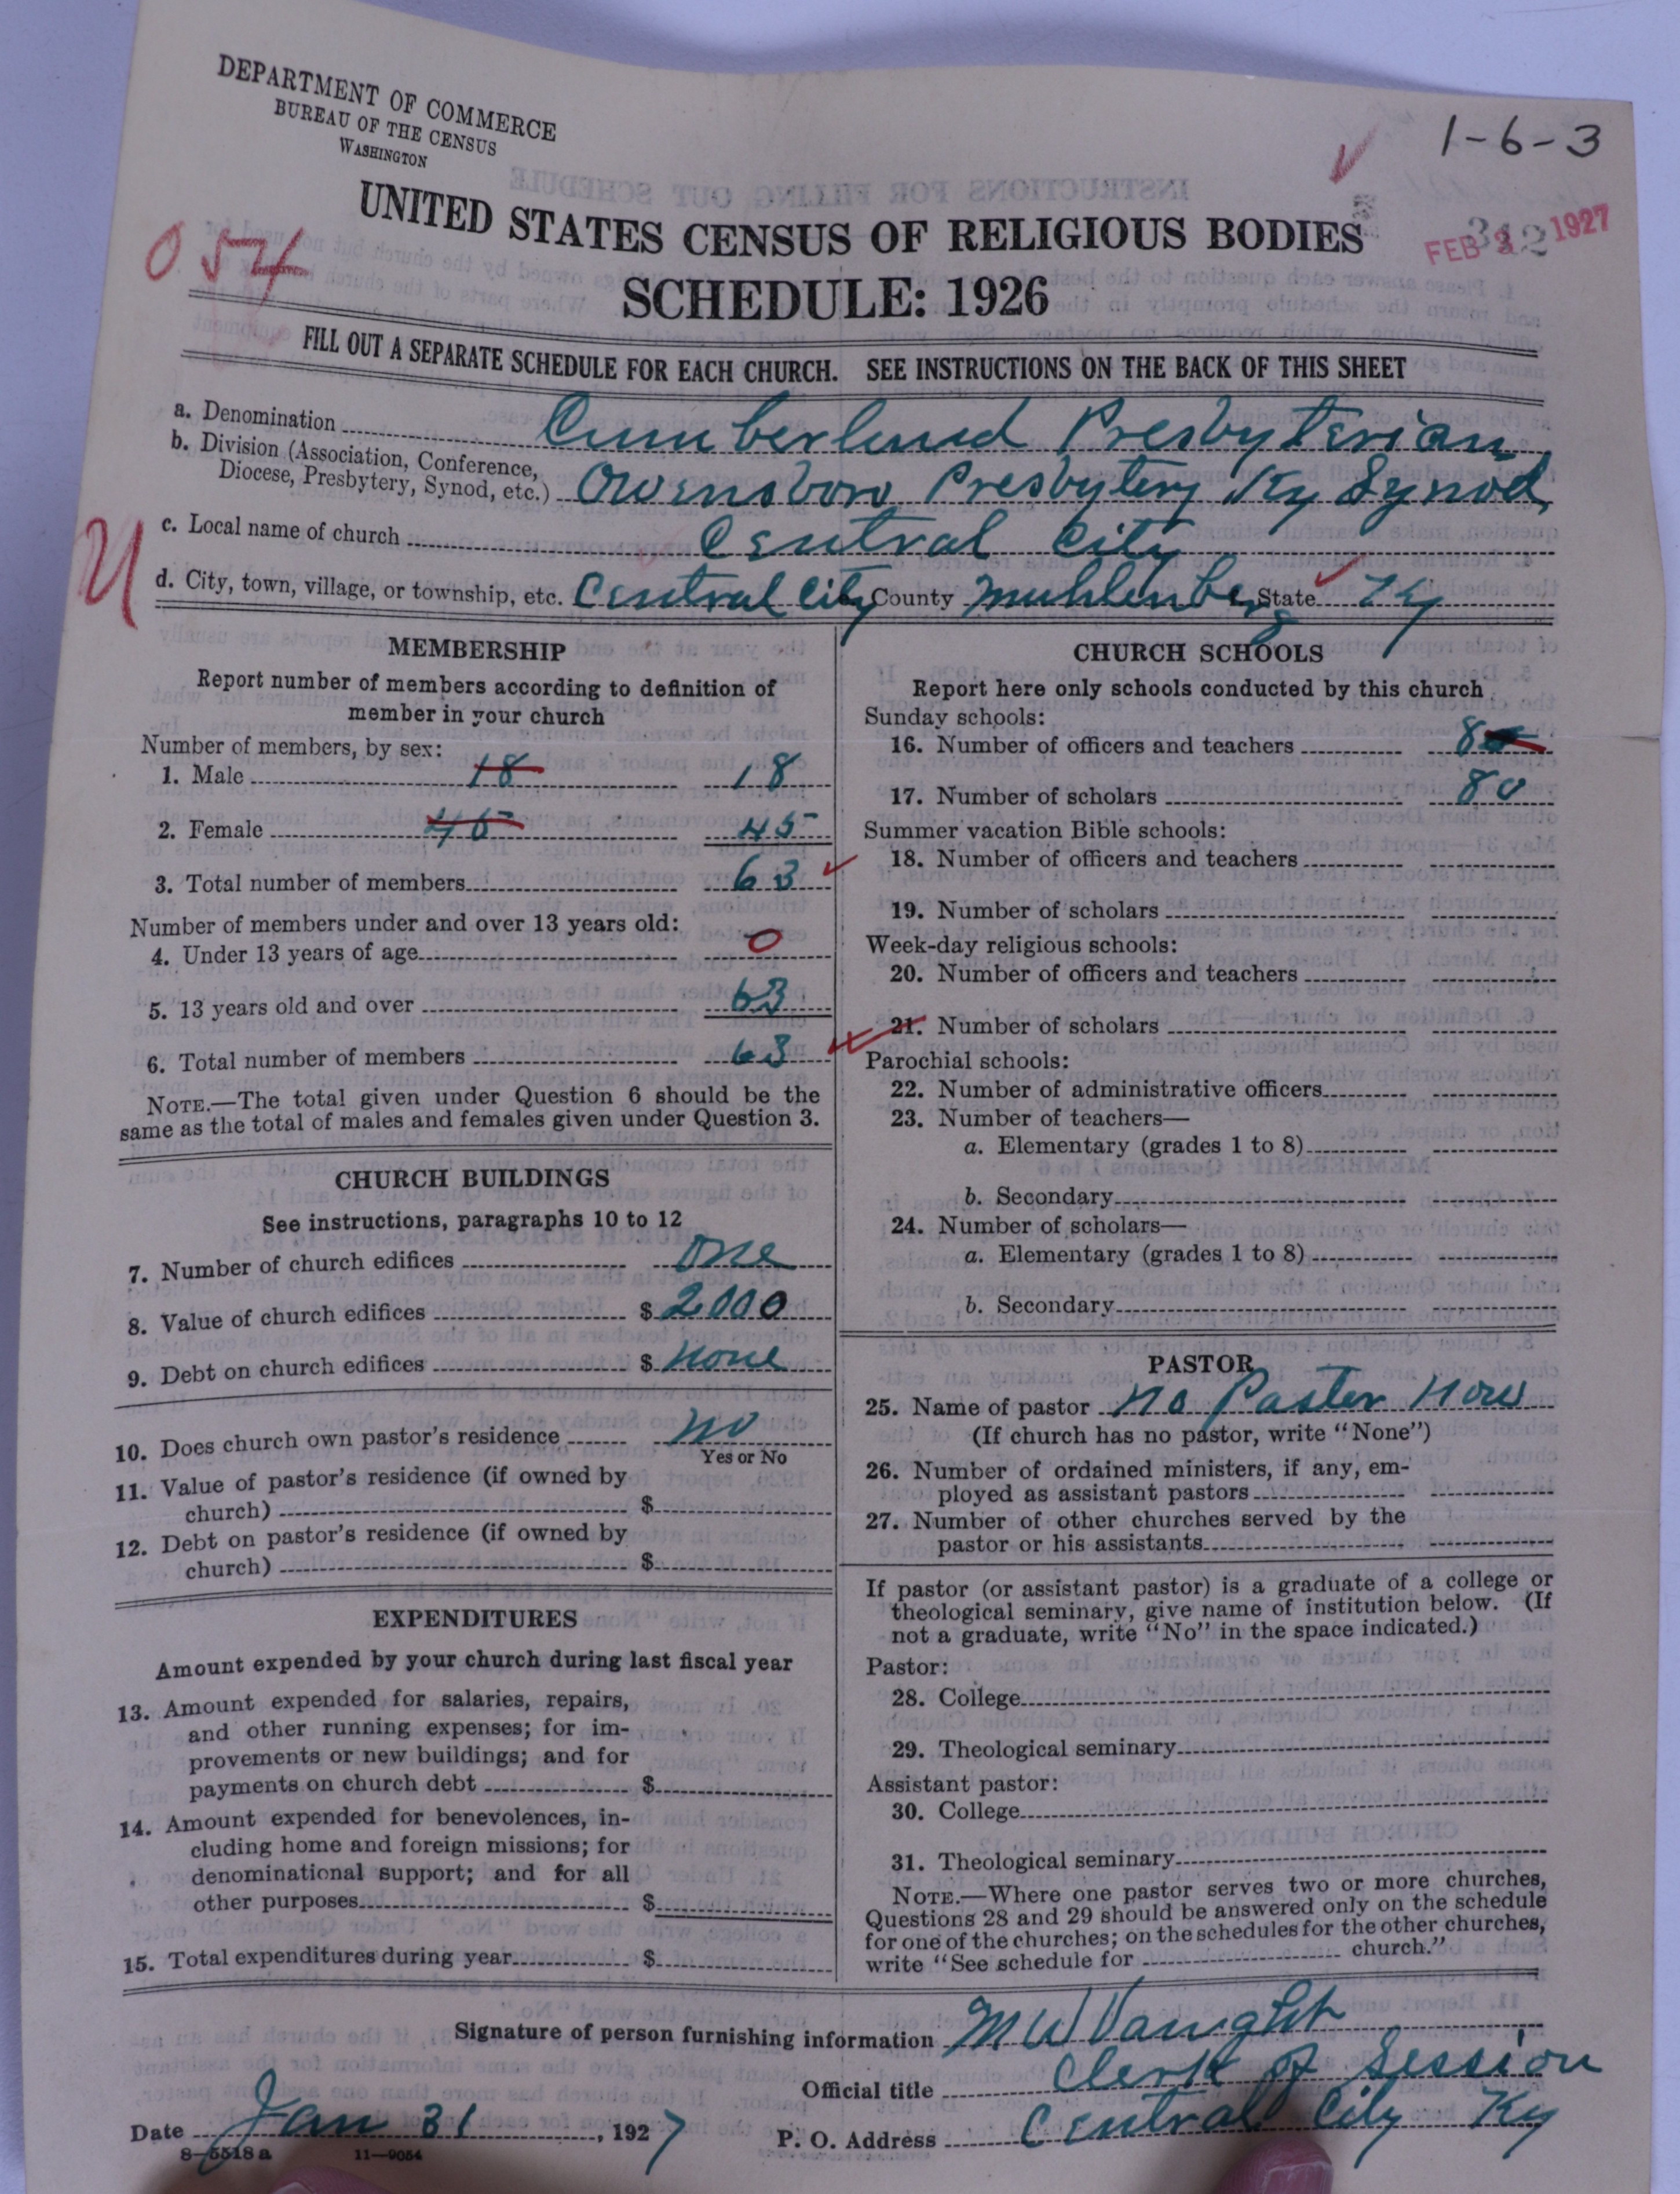 DEPARTMENT OF COMMERCE
BUREAU OF THE CENSUS
WASHINGTON
1-6-3
UNITED STATES CENSUS OF RELIGIOUS BODIES
FEB 1927
054
SCHEDULE: 1926
FILL OUT A SEPARATE SCHEDULE FOR EACH CHURCH. SEE INSTRUCTIONS ON THE BACK OF THIS SHEET
a. Denomination Cumberland Presbyterian
b. Division (Association, Conference,
Diocese, Presbytery, Synod, etc.) Owensboro Presbytery Ky Synod
c. Local name of church Central City
d. City, town, village, or township, etc. Central City County Muhlenberg State Ky
MEMBERSHIP
Report number of members according to definition of
member in your church
Number of members, by sex:
1. Male 18 18
2. Female 45 45
3. Total number of members 63
Number of members under and over 13 years old:
4. Under 13 years of age 0
5. 13 years old and over 63
6. Total number of members 63
NOTE.—The total given under Question 6 should be the
same as the total of males and females given under Question 3.
CHURCH BUILDINGS
See instructions, paragraphs 10 to 12
7. Number of church edifices one
8. Value of church edifices $ 2000
9. Debt on church edifices $ none
10. Does church own pastor's residence no
Yes or No
11. Value of pastor's residence (if owned by
church) $
12. Debt on pastor's residence (if owned by
church) $
EXPENDITURES
Amount expended by your church during last fiscal year
13. Amount expended for salaries, repairs,
and other running expenses; for im-
provements or new buildings; and for
payments on church debt $
14. Amount expended for benevolences, in-
cluding home and foreign missions; for
denominational support; and for all
other purposes $
15. Total expenditures during year $
CHURCH SCHOOLS
Report here only schools conducted by this church
Sunday schools:
16. Number of officers and teachers 8
17. Number of scholars 80
Summer vacation Bible schools:
18. Number of officers and teachers
19. Number of scholars
Week-day religious schools:
20. Number of officers and teachers
21. Number of scholars
Parochial schools:
22. Number of administrative officers
23. Number of teachers—
a. Elementary (grades 1 to 8)
b. Secondary
24. Number of scholars—
a. Elementary (grades 1 to 8)
b. Secondary
PASTOR
25. Name of pastor no Paster Now
(If church has no pastor, write "None")
26. Number of ordained ministers, if any, em-
ployed as assistant pastors
27. Number of other churches served by the
pastor or his assistants
If pastor (or assistant pastor) is a graduate of a college or
theological seminary, give name of institution below. (If
not a graduate, write "No" in the space indicated.)
Pastor:
28. College
29. Theological seminary
Assistant pastor:
30. College
31. Theological seminary
NOTE.—Where one pastor serves two or more churches,
Questions 28 and 29 should be answered only on the schedule
for one of the churches; on the schedules for the other churches,
write "See schedule for church."
Signature of person furnishing information M W Vaught
Official title Clerk of Session
Date Jan 31, 1927 P. O. Address Central City Ky
8-5518 a 11-9054